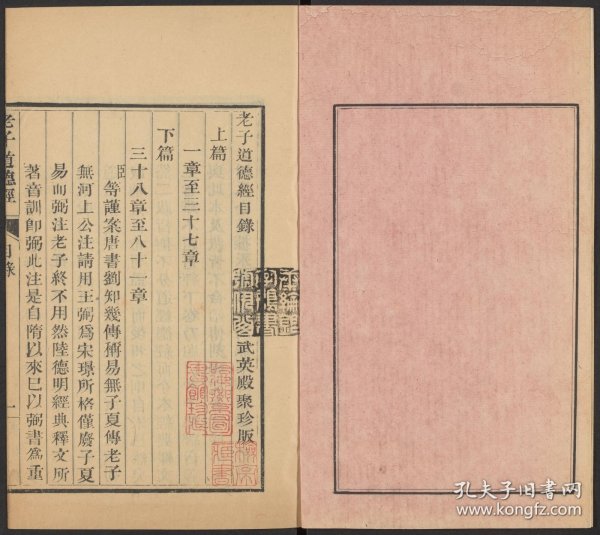 老子道德經目錄
武英殿聚珍版
上篇
一章至三十七章
下篇
三十八章至八十一章
臣等謹案唐書劉知幾傳稱易無子夏傳老子
無河上公注請用王弼爲宋璟所格僅廢子夏
易而弼注老子終不用然陸德明經典釋文所
著音訓即弼此注是自隋以來已以弼書爲重
老子道德經
目錄
一
孔夫子旧书网
www.kongfz.com